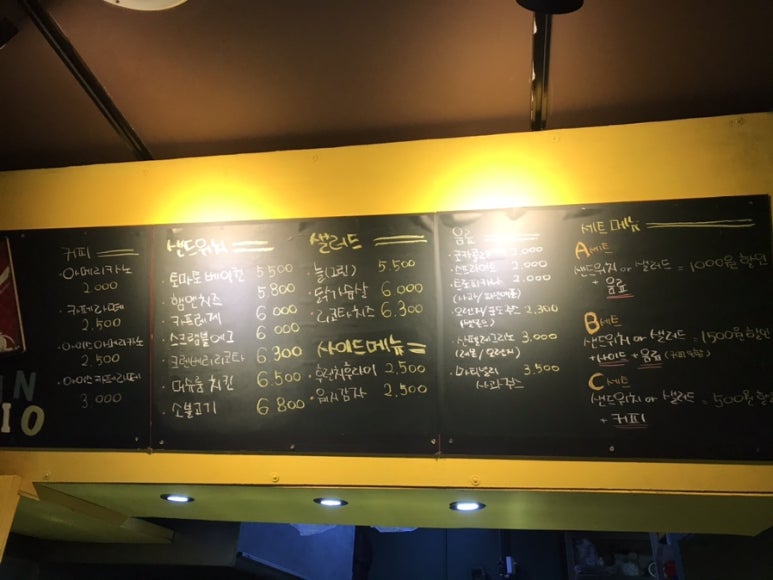 커피
·아메리카노
2.000
·카페라떼
2.500
·아이스아메리카노
2.500
·아이스카페라떼
3.000
IN
IO
샌드위치
·토마토 베이컨 5.500
·햄앤치즈 5.800
·카프레제 6.000
·스크램블에그 6.000
·크랜베리리코타 6.300
·머쉬룸 치킨 6.500
·소불고기 6.800
샐러드
·늘(그린) 5.500
·닭가슴살 6.000
·리코타치즈 6.300
사이드메뉴
·후렌치후라이 2,500
·웨지감자 2,500
음료
·코카콜라 2.000
·스프라이트 2.000
·트로피카나 2.000
·오렌지/포도쥬스 2,300
·산펠레그리노 3,000
(레몬/오렌지)
·마티넬리 3.500
사과쥬스
세트 메뉴
A세트
샌드위치 or 샐러드 = 1000원 할인
+ 음료
B세트
샌드위치 or 샐러드 = 1500원 할인
+ 사이드 + 음료 (커피 포함)
C세트
샌드위치 or 샐러드 = 500원 할인
+ 커피